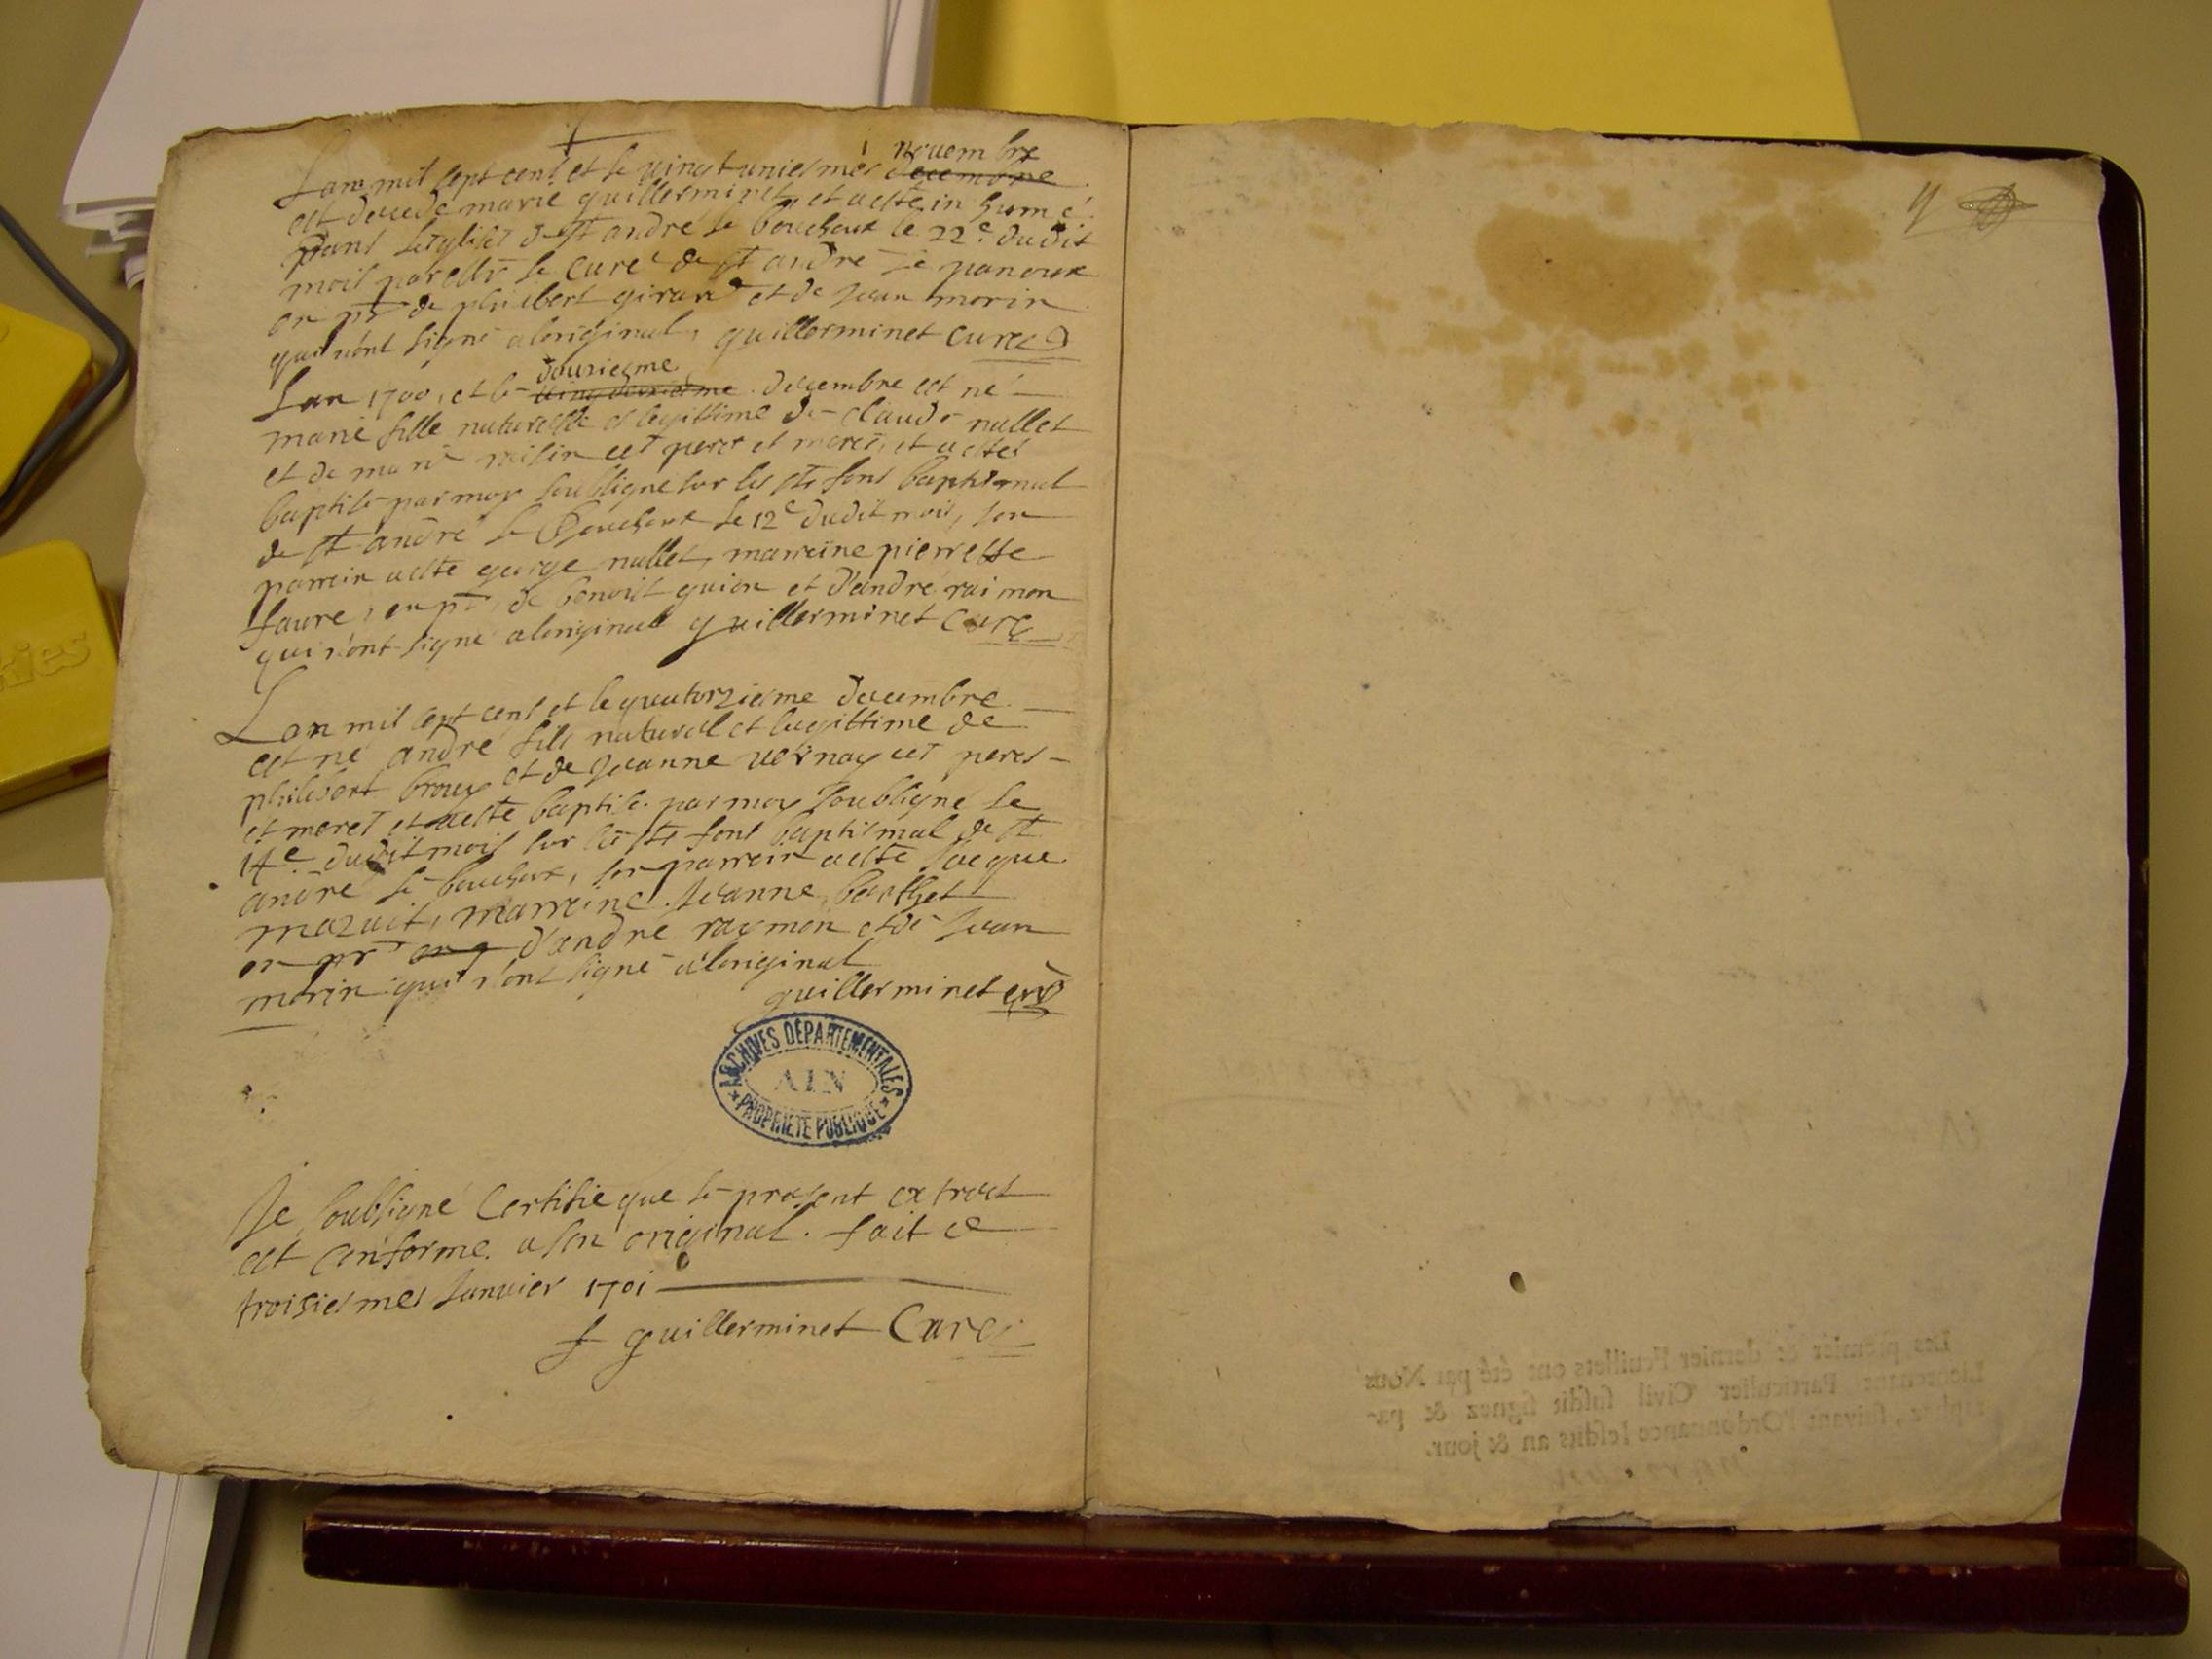 novembre
Lan mil sept cent et le vingt uniesmes decembre
est decede marie guillerminet, et aesté in humé
dans leglise de st andré le bouchoux le 22e dudit
mois par le curé de st andré le panoux
en pnt de philibert girard et de Jean morin
qui n'ont signé aloriginal, guillerminet curé
douziesme
Lan 1700, et le decembre est né
marie fille naturelle et legittime de claude nallet
et de marie ses peres et meres, et aesté
baptisé par moy soubsigné sur les sts fons baptismal
de st andré le Bouchoux le 12e dudit mois, son
parrein aesté george nallet, marreine pierrette
faure, en pnt de benoist guion et d'andré raimon
qui n'ont signé aloriginal guillerminet curé
Lan mil sept cent et le quatorziesme decembre
est né andré fils naturel et legittime de
philibert brouy et de Jeanne vernay ses peres
et meres et aesté baptisé par moy soubsigné le
14e dudit mois sur les sts fons baptismal de st
andré le bouchoux, son parrein aesté Jacque
mazuit, marreine Jeanne barthet
en pnt d'andré raymon et de Jean
morin qui n'ont signé aloriginal
guillerminet curé
ARCHIVES DÉPARTEMENTALES
AIN
PROPRIÉTÉ PUBLIQUE
Je soubsigné Certifie que le present extraict
est conforme a son original. fait ce
troisiesmes Janvier 1701
f guillerminet Curé
Les premier & dernier Feuillets ont été par Nous
Lieutenant Particulier Civil susdit signez & par-
aphez, suivant l'Ordonnance lesdits an & jour.